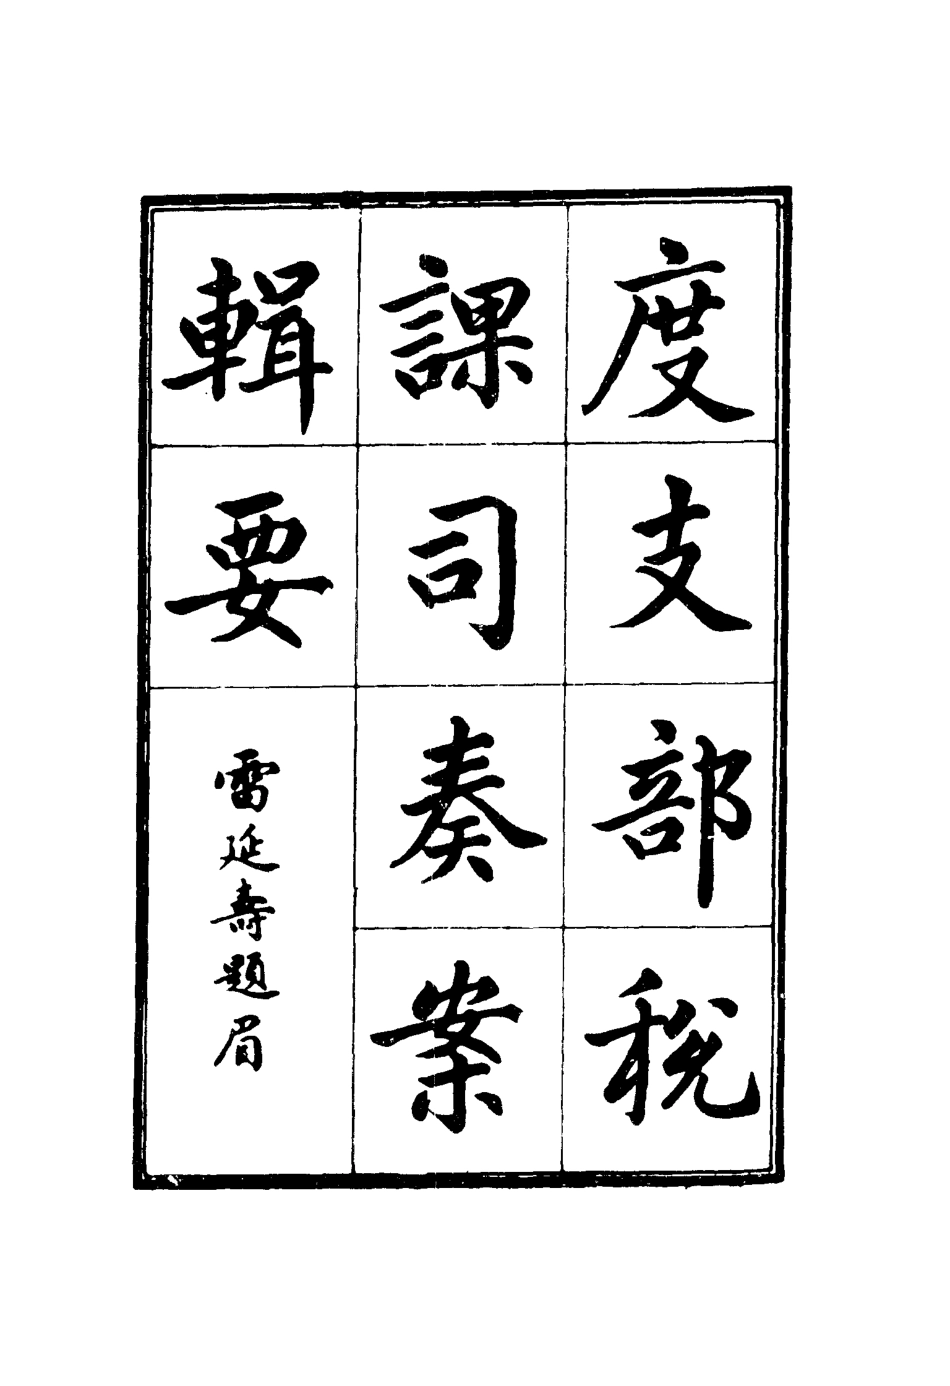 度支部稅
課司奏案
輯要
雷延壽題眉